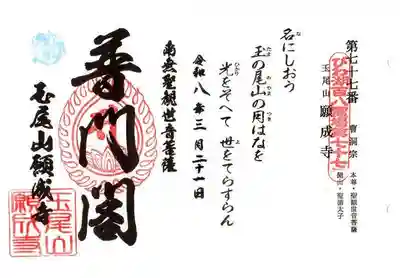 第七十七番 曹洞宗 本尊・聖観世音菩薩
玉尾山 願成寺 開山・聖徳太子
びわ湖百八霊場第七十七
名にしおう
玉の尾山の月はなを
光をそへて 世をてらすらん
令和八年三月二十一日
南無聖観世音菩薩
普門閣
玉尾山願成寺
玉尾山
願成寺